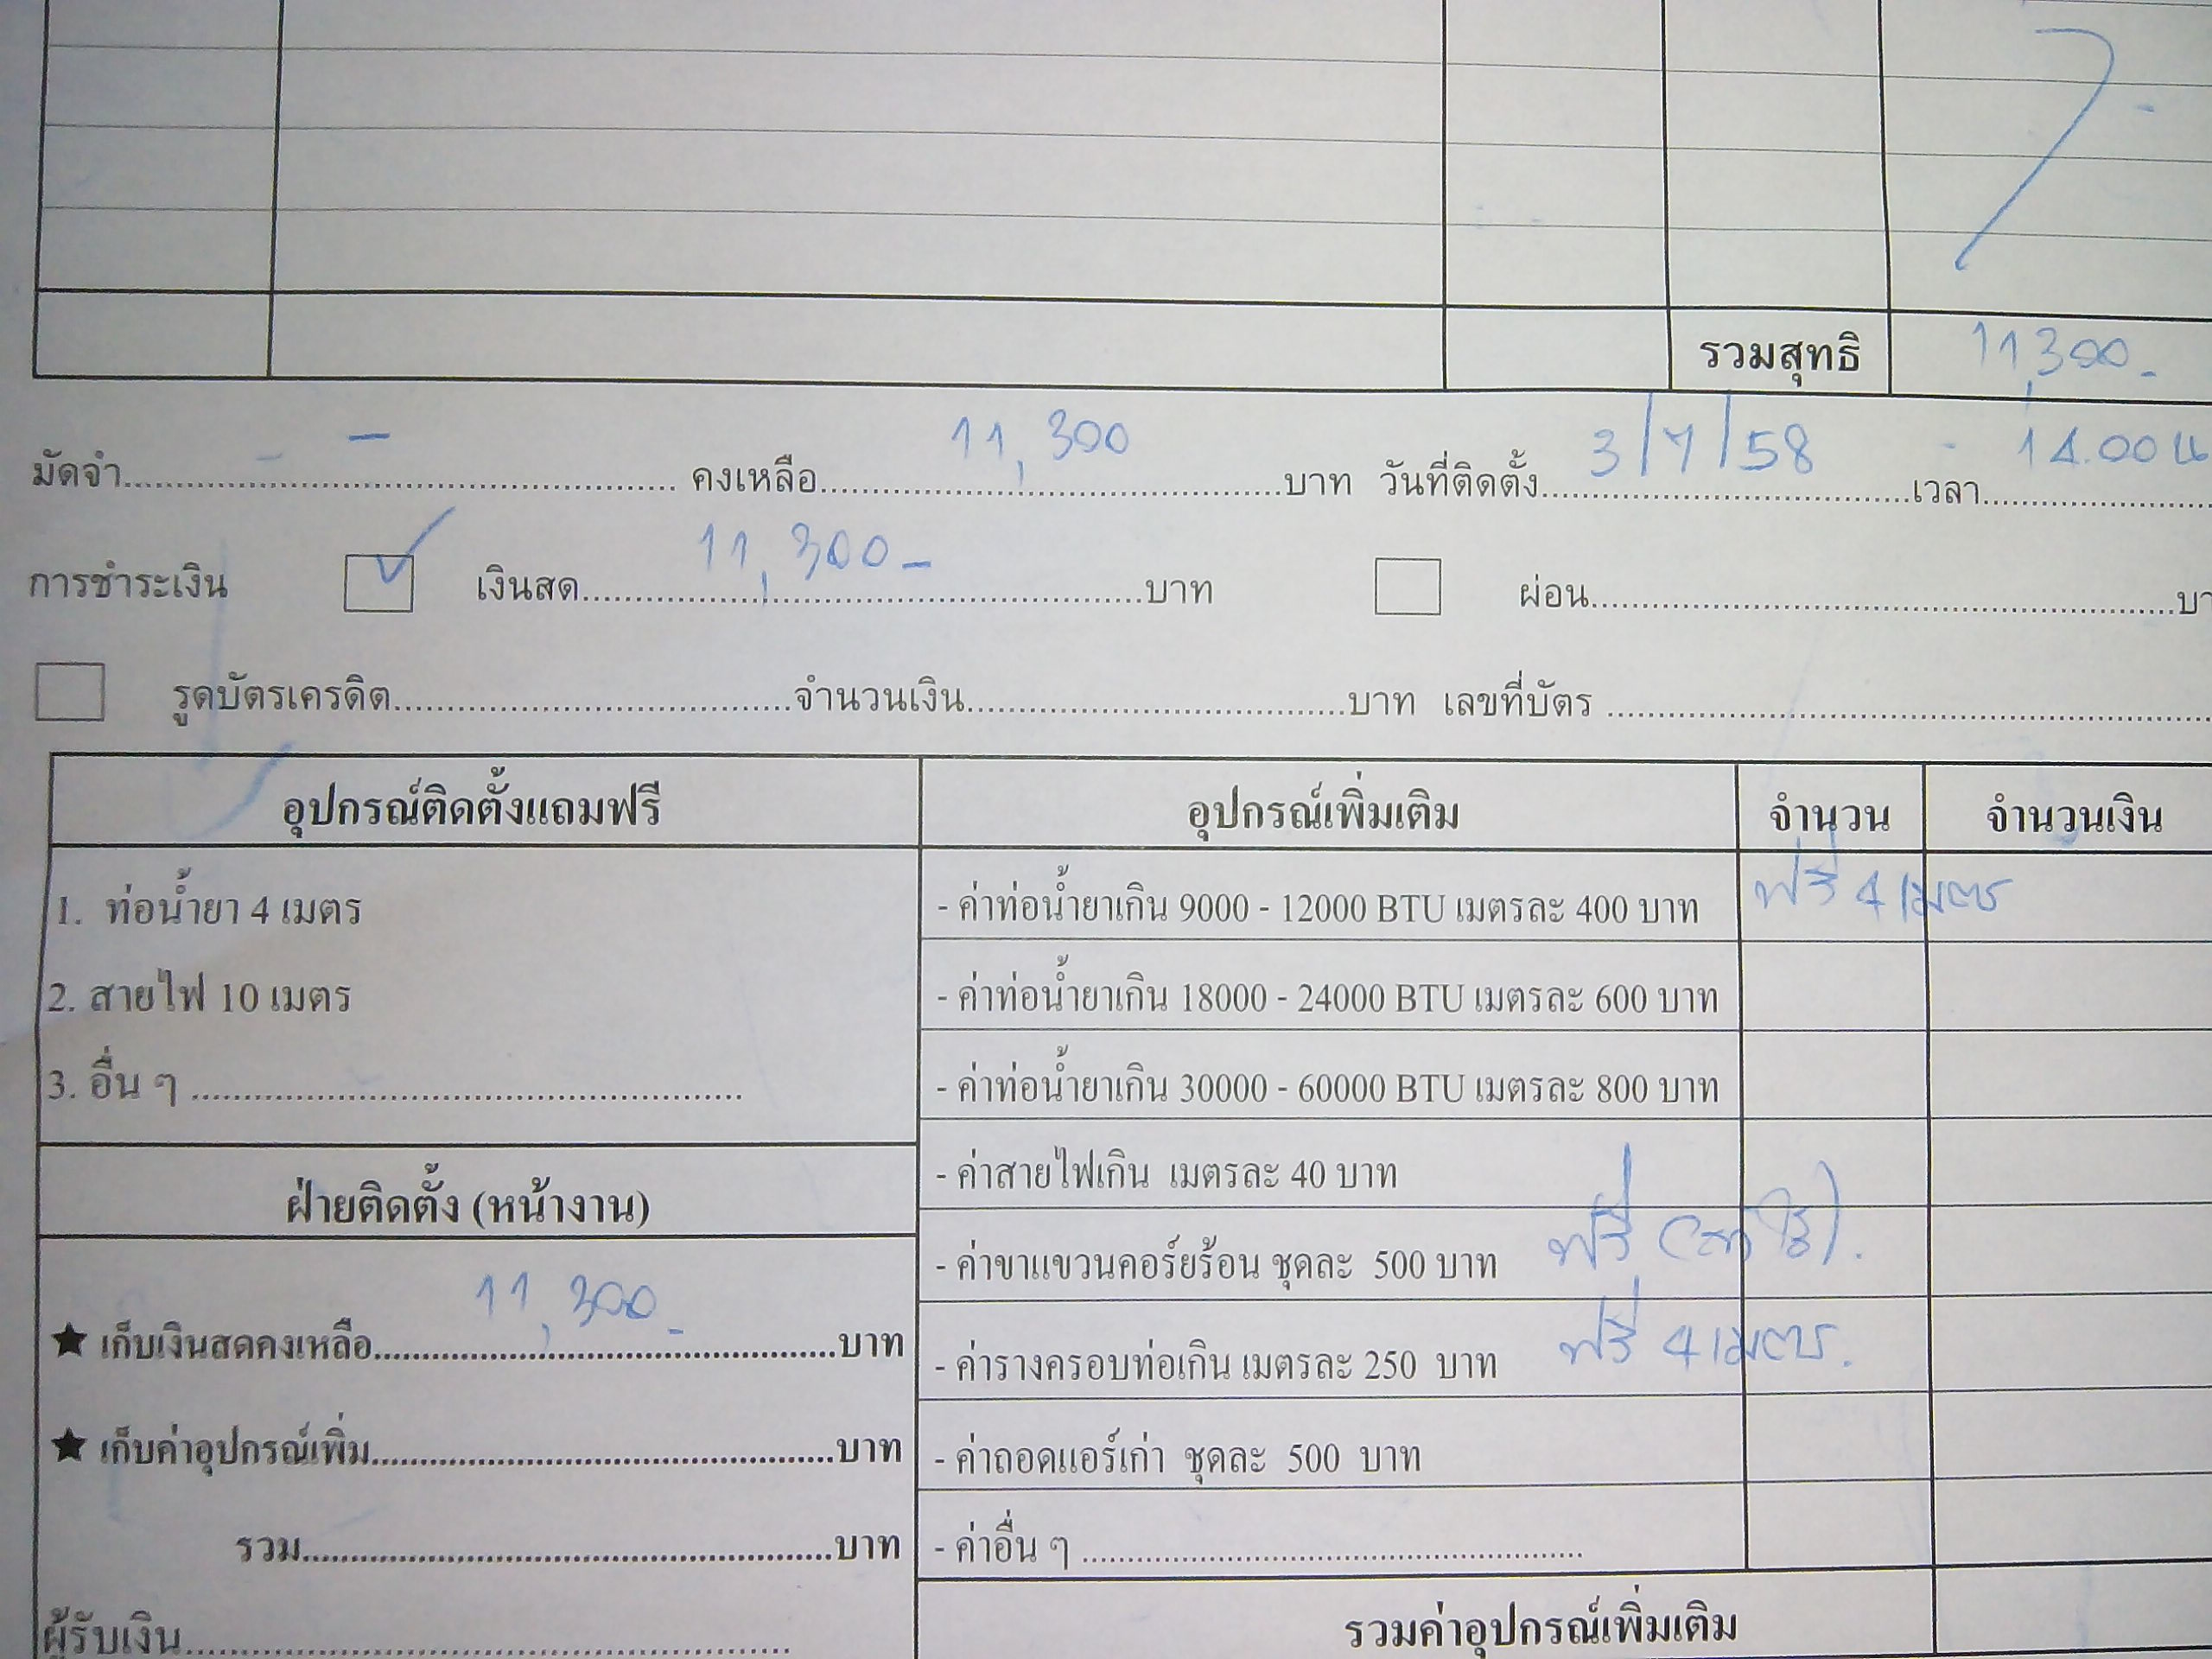 รวมสุทธิ 11,300.-
มัดจำ - คงเหลือ 11,300 บาท วันที่ติดตั้ง 3/7/58 เวลา 14.00 น
การชำระเงิน ✓ เงินสด 11,300- บาท ผ่อน บา
รูดบัตรเครดิต จำนวนเงิน บาท เลขที่บัตร
อุปกรณ์ติดตั้งแถมฟรี อุปกรณ์เพิ่มเติม จำนวน จำนวนเงิน
1. ท่อน้ำยา 4 เมตร - ค่าท่อน้ำยาเกิน 9000 - 12000 BTU เมตรละ 400 บาท ฟรี 4 เมตร
2. สายไฟ 10 เมตร - ค่าท่อน้ำยาเกิน 18000 - 24000 BTU เมตรละ 600 บาท
3. อื่น ๆ - ค่าท่อน้ำยาเกิน 30000 - 60000 BTU เมตรละ 800 บาท
- ค่าสายไฟเกิน เมตรละ 40 บาท
ฝ่ายติดตั้ง (หน้างาน)
- ค่าขาแขวนคอร์ยร้อน ชุดละ 500 บาท ฟรี
★ เก็บเงินสดคงเหลือ 11,300.- บาท - ค่ารางครอบท่อเกิน เมตรละ 250 บาท ฟรี 4 เมตร.
★ เก็บค่าอุปกรณ์เพิ่ม บาท - ค่าถอดแอร์เก่า ชุดละ 500 บาท
รวม บาท - ค่าอื่น ๆ
ผู้รับเงิน รวมค่าอุปกรณ์เพิ่มเติม